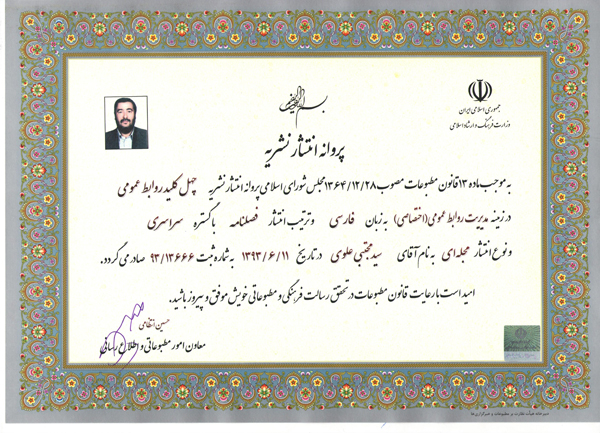 بسم الله الرحمن الرحیم
جمهوری اسلامی ایران
وزارت فرهنگ و ارشاد اسلامی
پروانه انتشار نشریه
به موجب ماده ۱۳ قانون مطبوعات مصوب ۱۳۶۴/۱۲/۲۸ مجلس شورای اسلامی پروانه انتشار نشریه چهل کلید روابط عمومی
در زمینه مدیریت روابط عمومی (اختصاصی) به زبان فارسی و ترتیب انتشار فصلنامه با گستره سراسری
و نوع انتشار مجله‌ای به نام آقای سید مجتبی علوی در تاریخ ۱۳۹۳/۶/۱۱ به شماره ثبت ۹۳/۱۳۶۶۶ صادر می‌گردد.
امید است با رعایت قانون مطبوعات در تحقق رسالت فرهنگی و مطبوعاتی خویش موفق و پیروز باشید.
حسین انتظامی
معاون امور مطبوعاتی و اطلاع رسانی
دبیرخانه هیأت نظارت بر مطبوعات و خبرگزاری‌ها